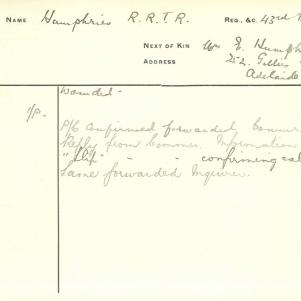 NAME Humphries R. R. T. R. REG., &C. 43rd
NEXT OF KIN Mr E. Humph
ADDRESS 252 Gillies
Adelaide
Wounded -
P/C confirmed forwarded,
Reply from Commr. Information
"Slip" " " confirming cab
Same forwarded Inquirer.